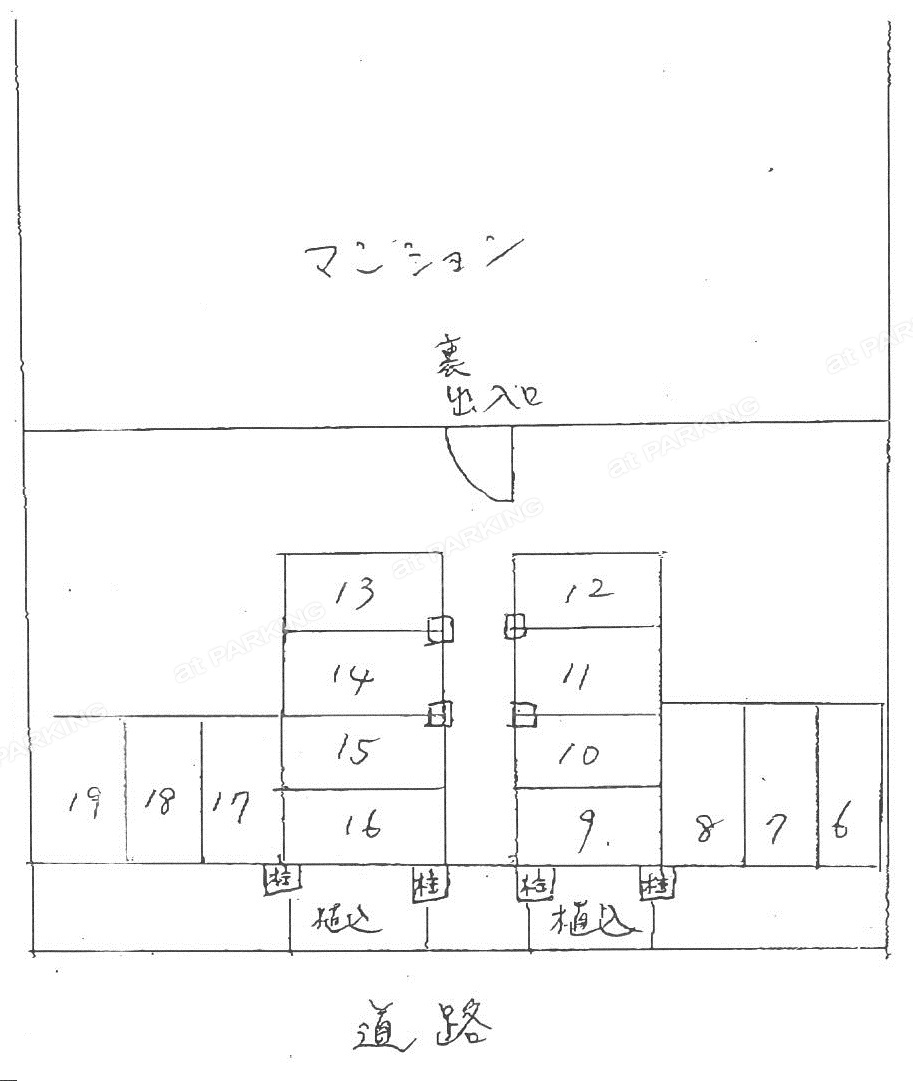 マンション
裏
出入口
13
12
14
11
15
10
19 18 17
16
9.
8 7 6
柱 柱 柱 柱
植込 植込
道路
at PARKING
at PARKING
at PARKING
at PARKING
at PARKING